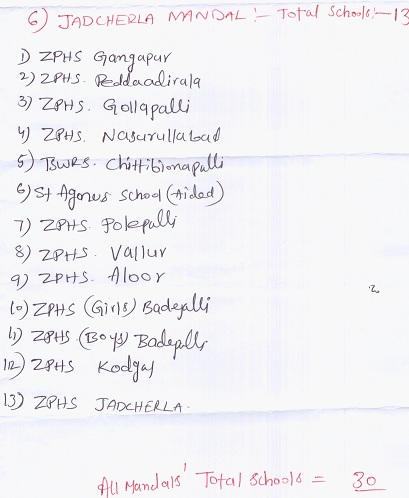 6) JADCHERLA MANDAL :- Total Schools :- 13
1) ZPHS Gangapur
2) ZPHS. Peddaadirala
3) ZPHS. Gollapalli
4) ZPHS. Nasurullabad
5) TSWRS. Chittibionapalli
6) St Agones School (Aided)
7) ZPHS. Polepalli
8) ZPHS. Vallur
9) ZPHS. Aloor
10) ZPHS (Girls) Badepalli
11) ZPHS (Boys) Badepalli
12) ZPHS Kodgal
13) ZPHS JADCHERLA.
All Mandals' Total Schools = 30